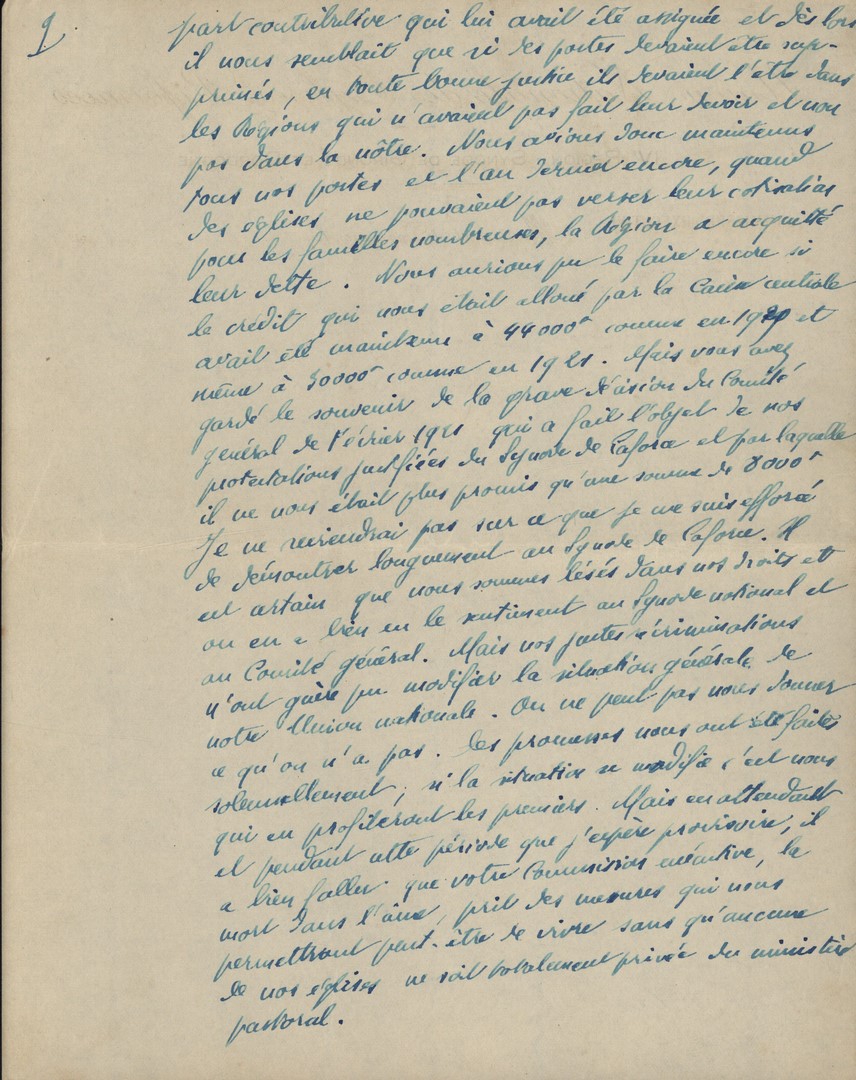 9
part contributive qui lui avait été assignée et dès lors
il nous semblait que si des postes devaient être sup-
primés, en toute bonne justice ils devaient l'être dans
les Régions qui n'avaient pas fait leur devoir et non
pas dans la nôtre. Nous avions donc maintenu
tous nos postes et l'an dernier encore, quand
des eglises ne pouvaient pas verser leur cotisation
pour les familles nombreuses, la Région a acquitté
leur dette. Nous aurions pu le faire encore si
le crédit qui nous était alloué par la Caisse centrale
avait été maintenu à 44000f comme en 1920 et
même à 30000f comme en 1921. Mais vous avez
gardé le souvenir de la grave décision du Comité
général de Février 1921 qui a fait l'objet de nos
protestations justifiées du Synode de Laforce et par laquelle
il ne nous était plus promis qu'une somme de 8000f
Je ne reviendrai pas sur ce que je me suis efforcé
de démontrer longuement au Synode de Laforce. Il
est certain que nous sommes lésés dans nos droits et
on en a bien eu le sentiment au Synode national et
au Comité général. Mais nos justes récriminations
n'ont guère pu modifier la situation générale de
notre Union nationale. On ne peut pas nous donner
ce qu'on n'a pas. Des promesses nous ont été faites
solennellement; si la situation se modifie c'est nous
qui en profiteront les premiers. Mais en attendant
et pendant cette période que j'espère provisoire, il
a bien fallu que votre Commission exécutive, la
mort dans l'âme, prit des mesures qui nous
permettront peut-être de vivre sans qu'aucune
de nos eglises ne soit totalement privée du ministère
pastoral.